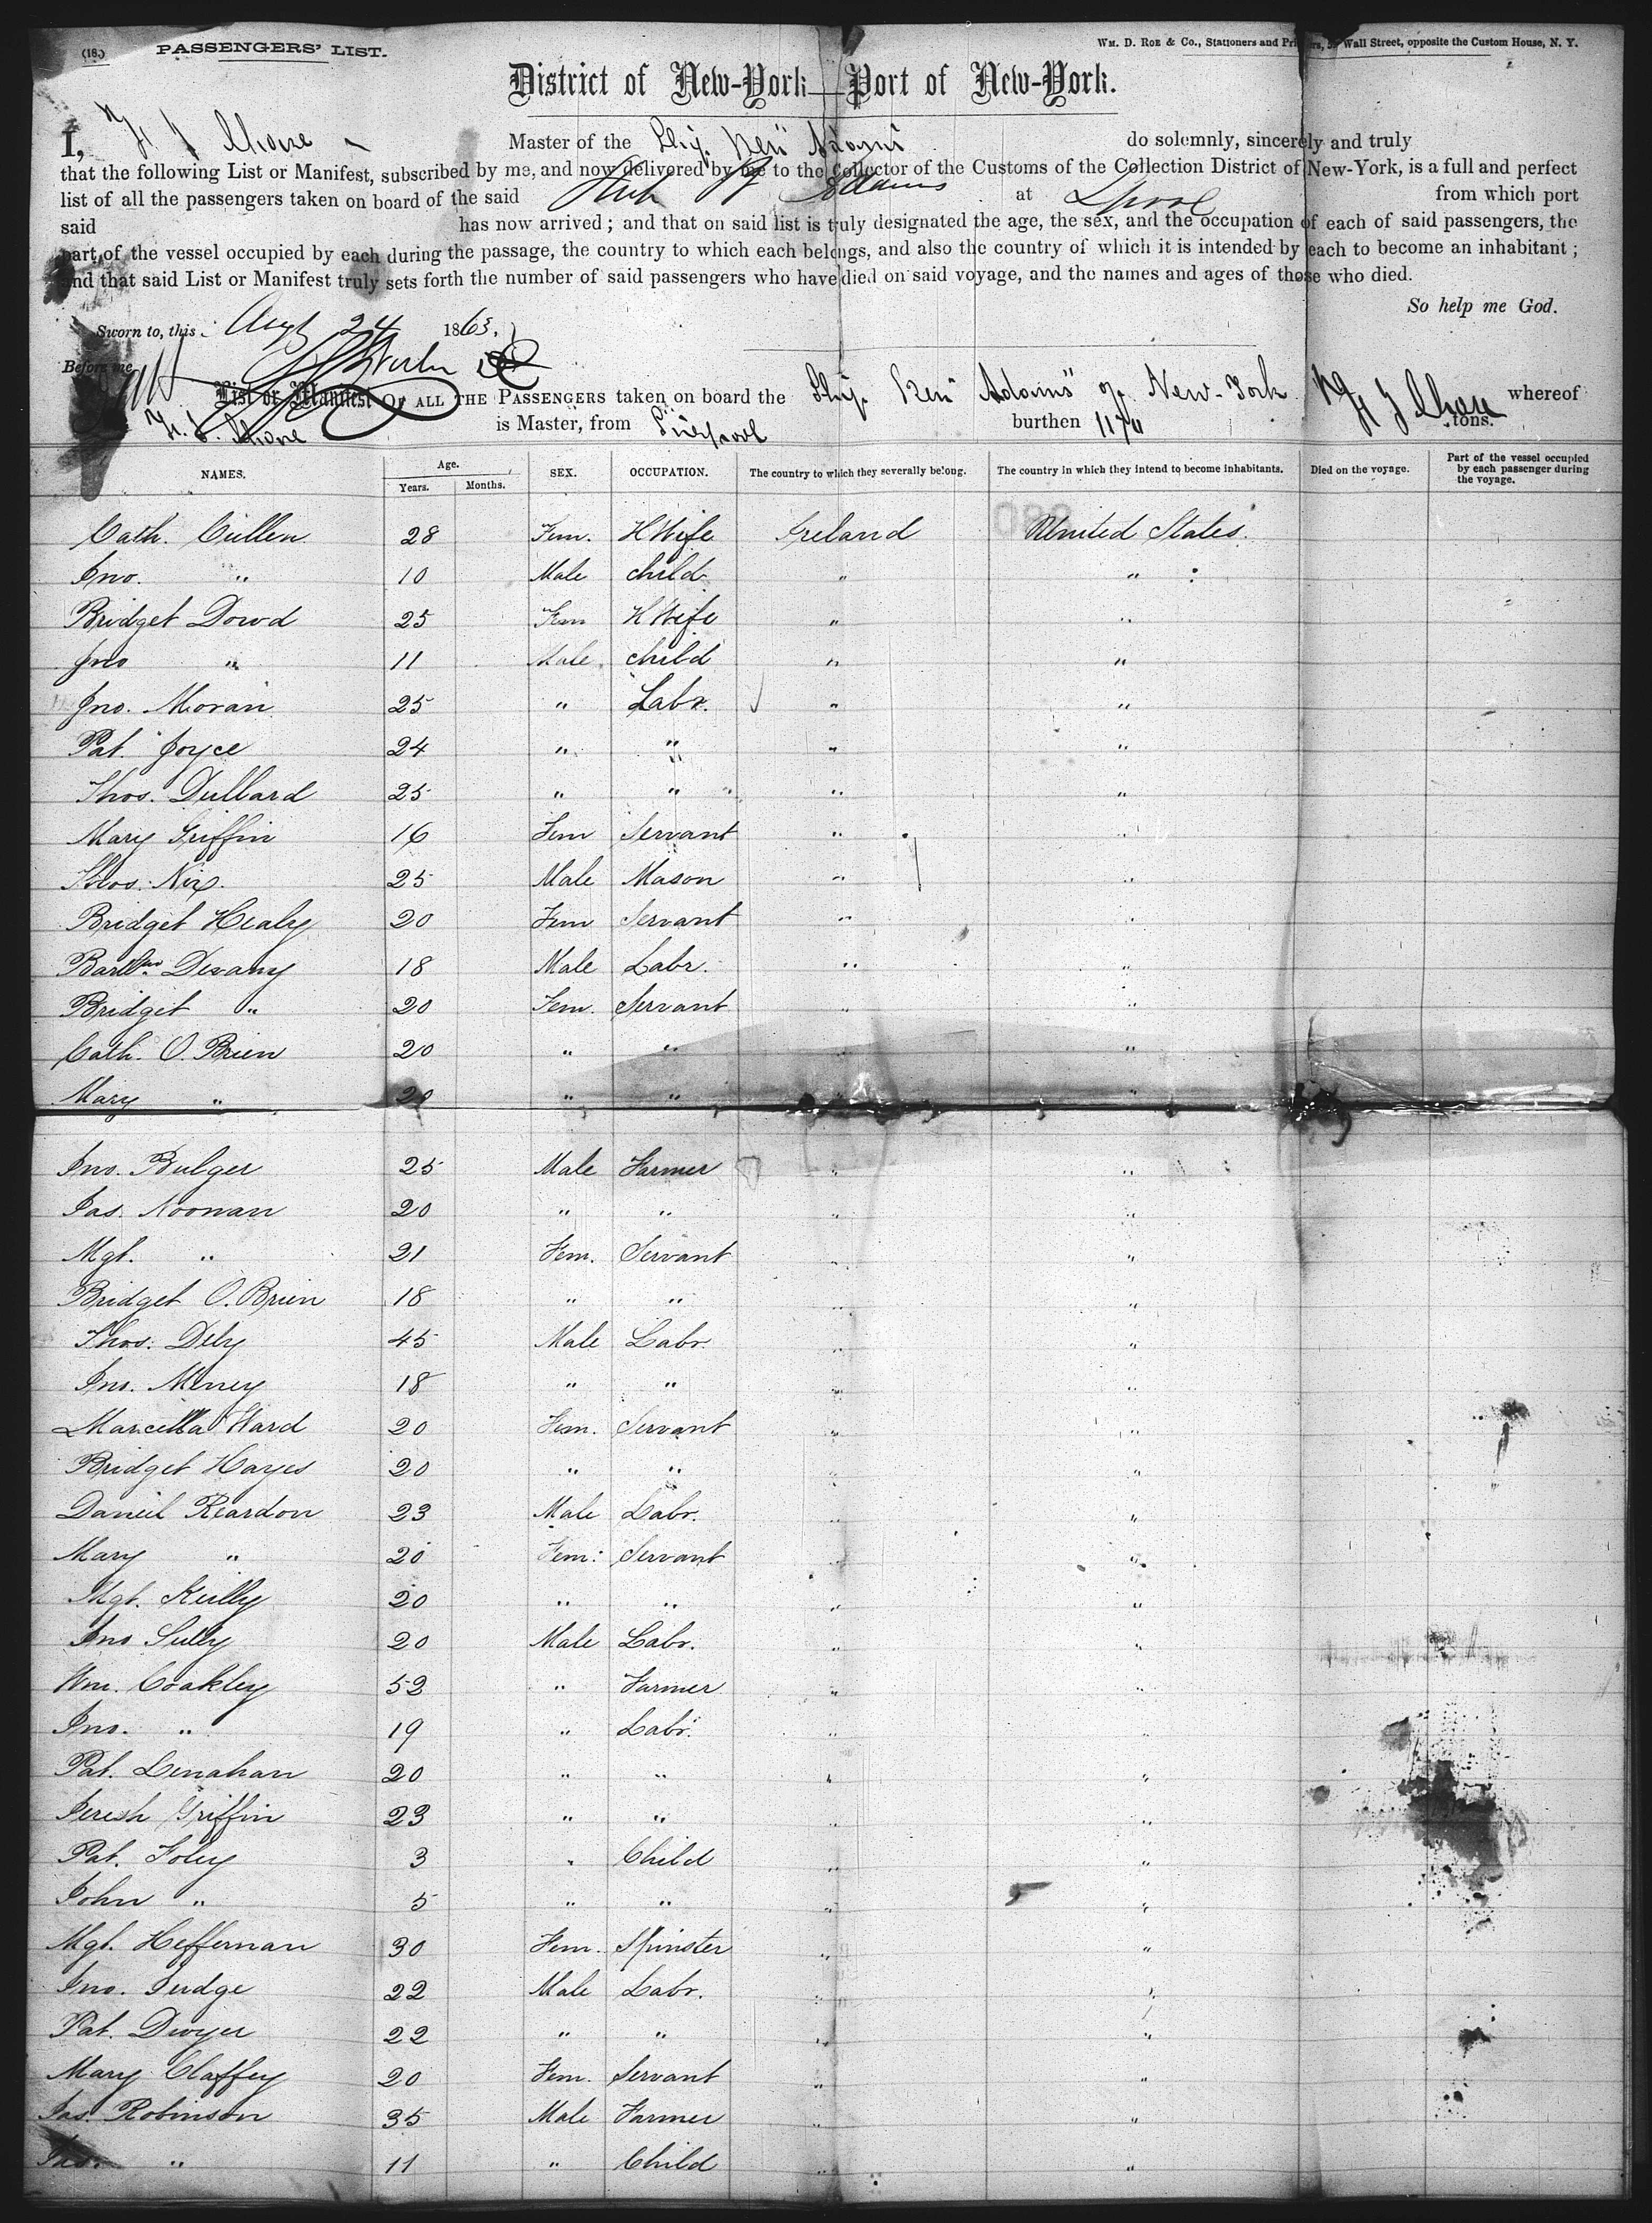 (18.) PASSENGERS' LIST.
WM. D. ROE & Co., Stationers and Printers, Wall Street, opposite the Custom House, N. Y.
District of New-York—Port of New-York.
I, Master of the Ship Adams do solemnly, sincerely and truly
that the following List or Manifest, subscribed by me, and now delivered by me to the Collector of the Customs of the Collection District of New-York, is a full and perfect
list of all the passengers taken on board of the said Adams at Lpool from which port
said has now arrived; and that on said list is truly designated the age, the sex, and the occupation of each of said passengers, the
part of the vessel occupied by each during the passage, the country to which each belongs, and also the country of which it is intended by each to become an inhabitant;
and that said List or Manifest truly sets forth the number of said passengers who have died on said voyage, and the names and ages of those who died.
So help me God.
Sworn to, this Augt 24 1863.
Before me
List or Manifest OF ALL THE PASSENGERS taken on board the Ship Adams" of New-York whereof
is Master, from Liverpool burthen 1170 tons.
NAMES. Age. SEX. OCCUPATION. The country to which they severally belong. The country in which they intend to become inhabitants. Died on the voyage. Part of the vessel occupied by each passenger during the voyage.
Years. Months.
Cath. Cullen 28 Fem. H Wife Ireland United States.
Jno. " 10 Male child " "
Bridget Dowd 25 Fem H Wife " "
Jno " 11 Male child " "
Jno. Moran 25 " Labr. " "
Pat. Joyce 24 " " " "
Thos. Dullard 25 " " " "
Mary Griffin 16 Fem Servant " "
Thos. Nix. 25 Male Mason " "
Bridget Healy 20 Fem Servant " "
Devany 18 Male Labr. " "
Bridget " 20 Fem. Servant " "
Cath. O. Brien 20 " " " "
Mary " 20 " " "
Jno. Bulger 25 Male Farmer " "
Jas. Noonan 20 " " " "
Mgt. " 21 Fem. Servant " "
Bridget O. Brien 18 " " " "
Thos. Deby 45 Male Labr. " "
Jno. Merrey 18 " " " "
Marcella Ward 20 Fem. Servant " "
Bridget Hayes 20 " " " "
Daniel Reardon 23 Male Labr. " "
Mary " 20 Fem: Servant " "
Mgt. Keilly 20 " " " "
Jno Sully 20 Male Labr. " "
Wm. Coakley 52 " Farmer " "
Jno. " 19 " Labr. " "
Pat. Lenahan 20 " " " "
Jeresh Griffin 23 " " " "
Pat. Foley 3 " Child " "
John " 5 " " " "
Mgt. Heffernan 30 Fem. Spinster " "
Jno. Judge 22 Male Labr. " "
Pat. Dwyer 22 " " " "
Mary Claffey 20 Fem. Servant " "
Jas. Robinson 35 Male Farmer " "
" 11 " Child " "